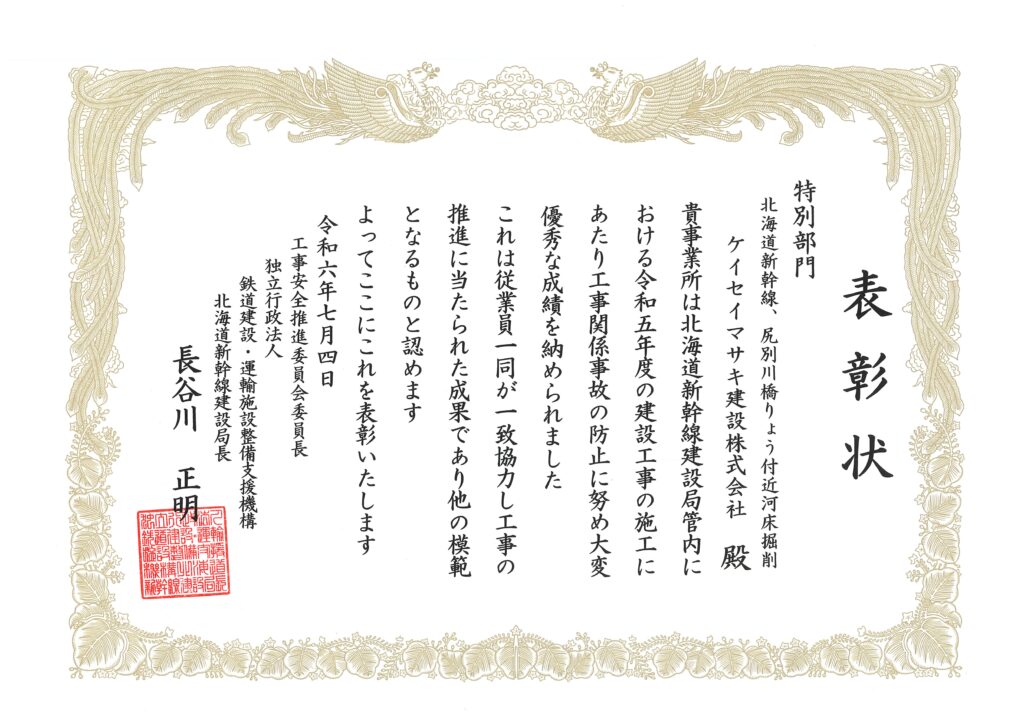 表彰状
特別部門
北海道新幹線、尻別川橋りょう付近河床掘削
ケイセイマサキ建設株式会社 殿
貴事業所は北海道新幹線建設局管内に
おける令和五年度の建設工事の施工に
あたり工事関係事故の防止に努め大変
優秀な成績を納められました
これは従業員一同が一致協力し工事の
推進に当たられた成果であり他の模範
となるものと認めます
よってここにこれを表彰いたします
令和六年七月四日
工事安全推進委員会委員長
独立行政法人
鉄道建設・運輸施設整備支援機構
北海道新幹線建設局長
長谷川 正明